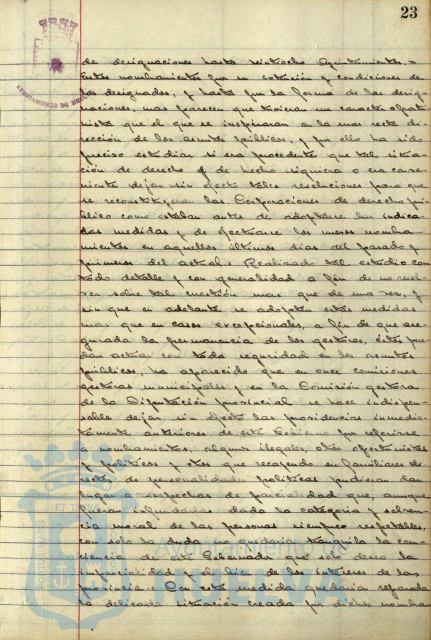 23
de designaciones hasta veintiocho Ayuntamientos.=
Estos nombramientos por su extensión y condiciones de
los designados, y hasta por la forma de las desig-
naciones, mas parecen que tuvieran un caracter oportu-
nista que el que se inspiraran a la mas recta di-
rección de los asuntos públicos, y por ello ha sido
preciso estudiar si era procedente que tal situa-
ción de derecho y de hecho siguiera o era conve-
niente dejar sin efecto tales resoluciones para que
se reconstituyeran las Corporaciones de derecho pú-
blico como estaban antes de adoptarse las indica-
das medidas y de efectuarse los meros nombra-
mientos en aquellos últimos días del pasado y
primeros del actual. Realizado tal estudio con
todo detalle y con generalidad a fin de no resol-
ver sobre tal cuestión mas que de una vez, y
sin que en adelante se adopten estas medidas
mas que en casos excepcionales, a fin de que ase-
gurada la permanencia de los gestores, éstos pue-
dan actuar con toda seguridad en los asuntos
públicos, ha aparecido que en once comisiones
gestoras municipales y en la Comisión gestora
de la Diputación provincial se hace indispen-
sable dejar sin efecto las providencias inmedia-
tamente anteriores de este Gobierno por referirse
a nombramientos, algunos ilegales, otros oportunistas
y políticos y otros que recayendo en familiares di-
rectos de personalidades políticas pudieran dar
lugar a sospechas de parcialidad que, aunque
fueran infundadas dada la categoría y solven-
cia moral de las personas siempre respetables,
con solo la duda no quedaría tranquila la con-
ciencia de este Gobernador que solo desea la
imparcialidad y el bien de los intereses de las
provincias. Con esta medida quedaría reparada
la delicada situación creada por dichos nombra-